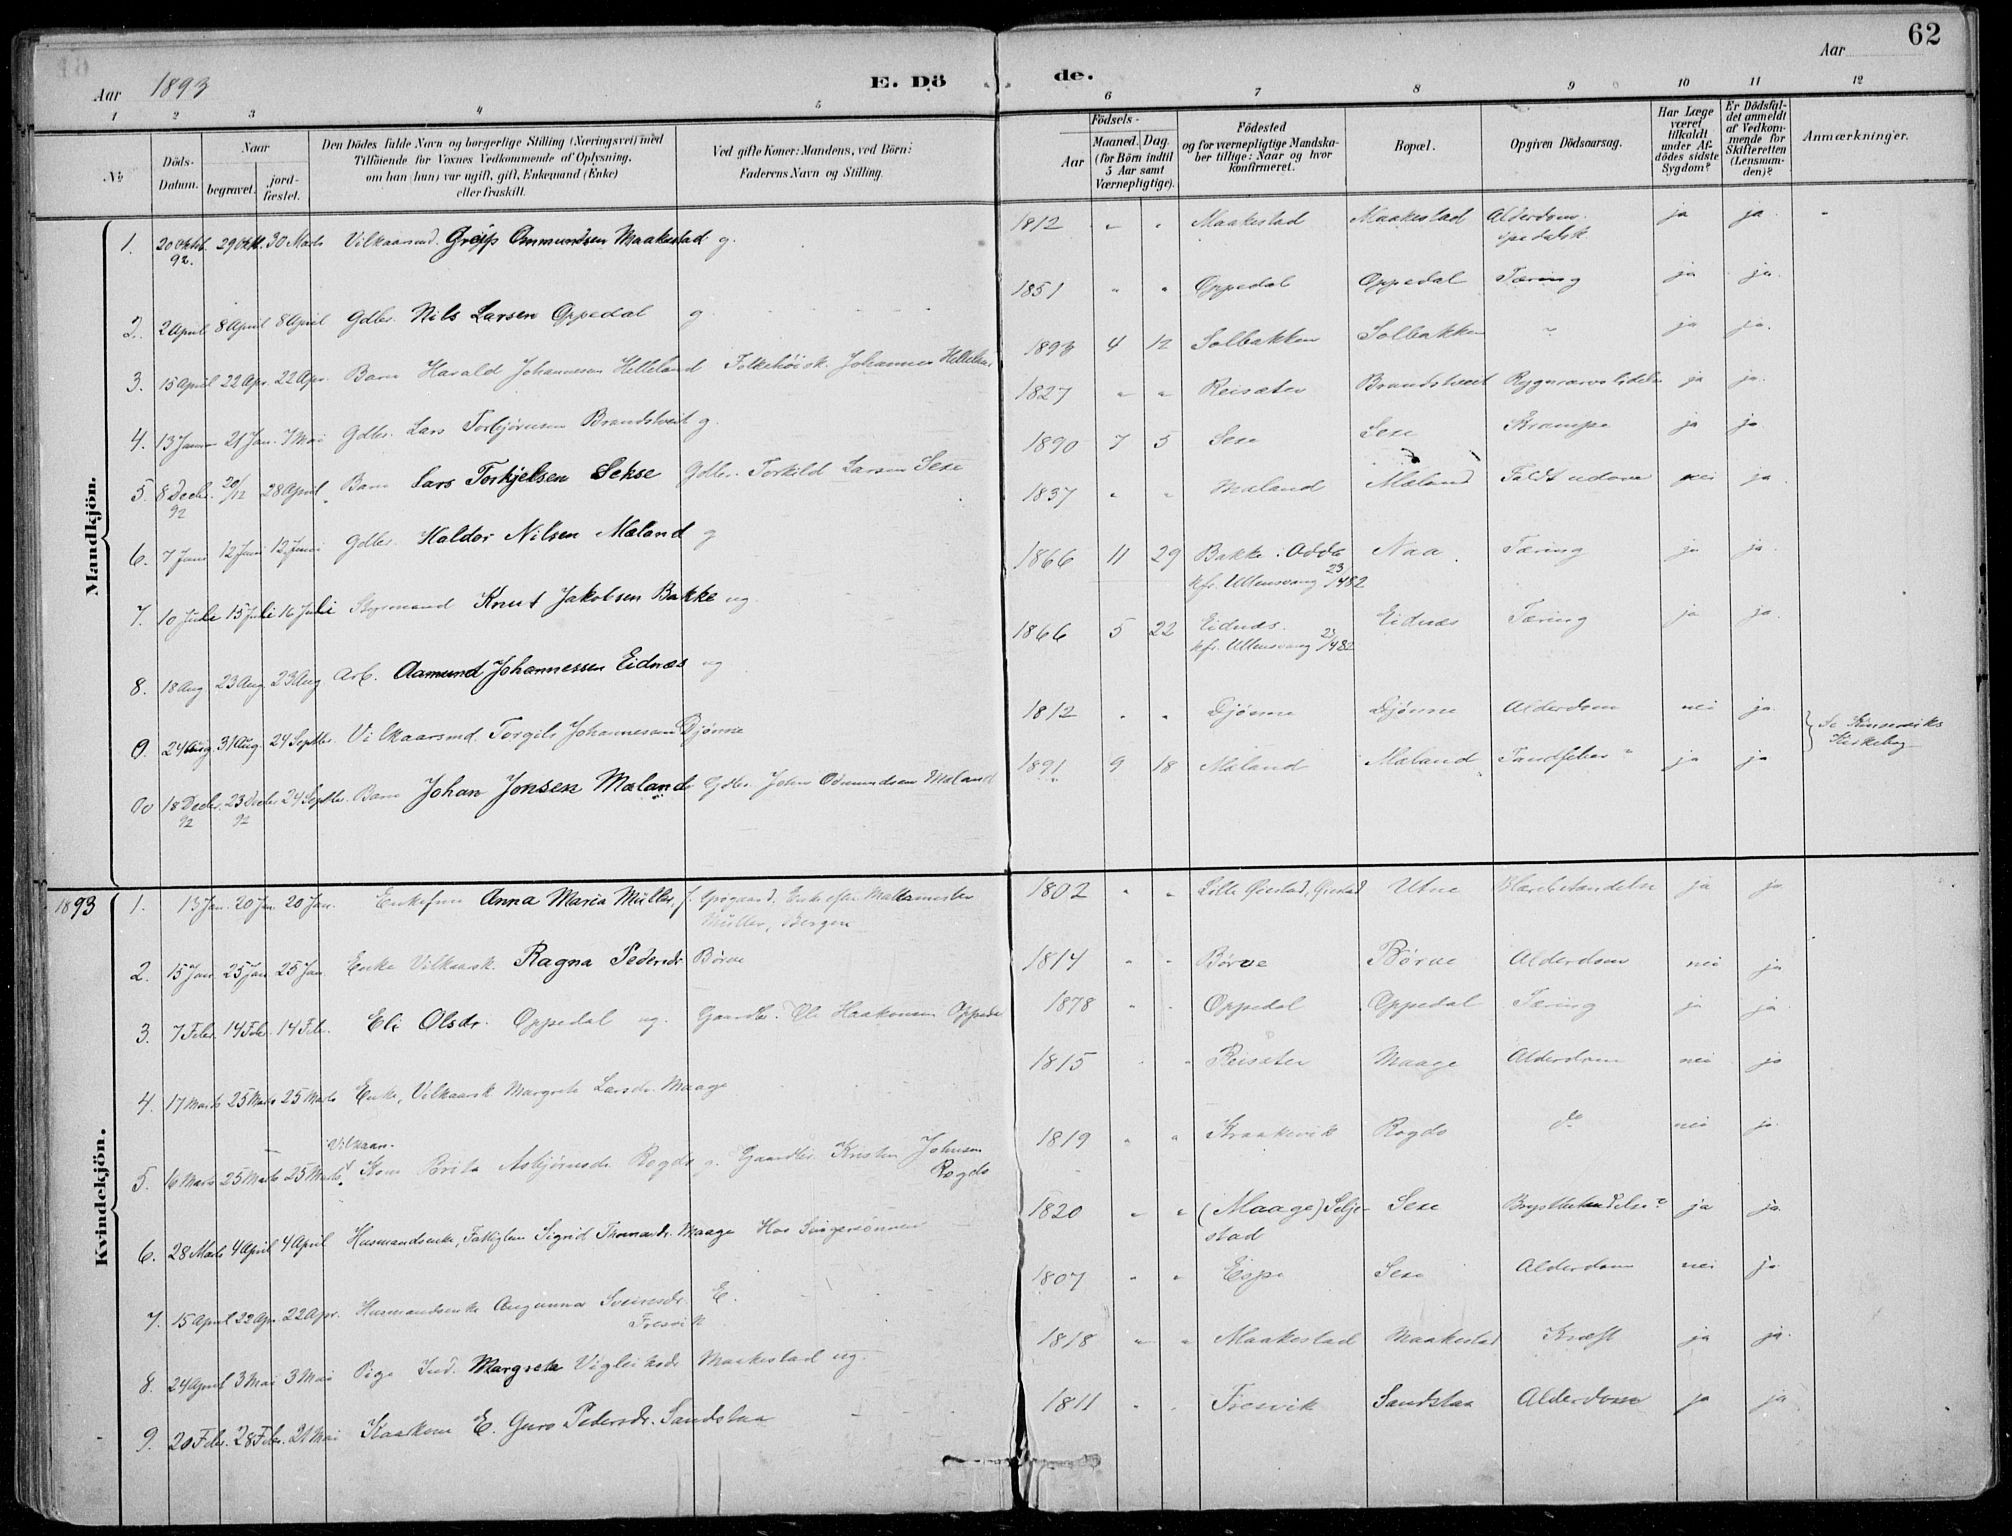 62
Aar 1893
E. Dö de.
Aar
1 2 3 4 5 6 7 8 9 10 11 12
№
Döds-Datum.
Naar
begravet.
jord-fæstet.
Den Dödes fulde Navn og borgerlige Stilling (Næringsvei) med
Tilföiende for Voxnes Vedkommende af Oplysning,
om han (hun) var ugift, gift, Enkemand (Enke)
eller fraskilt.
Ved gifte Koner: Mandens, ved Börn:
Faderens Navn og Stilling.
Födsels-
Aar
Maaned. Dag.
(for Börn indtil
5 Aar samt
Værnepligtige).
Födested
og for værnepligtige Mandska-
ber tillige: Naar og hvor
konfirmeret.
Bopæl.
Opgiven Dödsaarsag.
Har Læge
været
tilkaldt
under Af-
dödes sidste
Sygdom?
Er Dödsfal-
det anmeldt
af Vedkom-
mende for
Skifteretten
(Lensman-
den)?
Anmærkninger.
Mandkjön.
1. 20 Oktb. 92. 29 Oktb. 30 Marts Vilkaarsmd. Greip Ommundsen Maakestad g. 1812 " " Maakestad Maakestad Alderdom. spedalsk ja ja. "
2. 2 April 8 April 8 April Gdbr. Nils Larsen Oppedal g. 1851 " " Oppedal Oppedal Tæring ja ja.
3. 15 April 22 Apr. 22 Apr. Barn Harald Johannessen Helleland Folkehöisk. Johannes Helleland 1893 4 12 Solbakken Solbakken " ja ja.
4. 13 Januar 21 Jan. 7 Mai Gdbr. Lars Torbjörnsen Brandstveit g. 1827 " " Reisæter Brandstveit Rygmarvslidelse ja ja.
5. 8 Decbr. 92 20/12 28 April Barn Lars Torkjelsen Sekse Gdbr. Torkild Larsen Sexe 1890 7 5 Sexe Sexe Krampe ja ja
6. 7 Juni 12 Juni 12 Juni Gdbr. Haldor Nilsen Mæland g 1837 " " Mæland Mæland Faldt udover nei ja
7. 10 Juli 15 Juli 16 Juli Styrmand Knut Jakobsen Bakke ug. 1866 11 29 Bakke i Odda Naa Tæring ja ja.
kfr. Ullensvang 23/4 82
8. 18 Aug. 23 Aug. 23 Aug Arb. Aamund Johannessen Eidnæs ug 1866 5 22 Eidnæs. Eidnæs Tæring ja ja.
kfr. Ullensvang 23/4 82
9. 24 Aug. 31 Aug. 24 Septbr. Vilkaarsmd. Torgils Johannessen Djönne 1812 " " Djönne Djönne Alderdom nei ja.
Se Kinserviks
Kirkebog
18 Decbr. 92 23 Decbr. 92 24 Septbr. Barn Johan Jonsen Mæland Gdbr. John Odmundsen Mæland 1891 9 18 Mæland Mæland Tandfeber ja ja
Kvindekjön.
1893 1. 13 Jan. 20 Jan. 20 Jan. Enkefru Anna Maria Müller, f. Enke efter 1802 " " Utne Blærebetændelse ja ja
Müller, Bergen
2. 15 Jan 25 Jan 25 Jan Enke Vilkaarsk. Ragna Pedersdr. Börve 1814 " " Börve Börve Alderdom nei ja
3. 7 Febr. 14 Febr. 14 Febr. Eli Olsdr. Oppedal ug. Gaardbr. Ole Haakonsen Oppedal 1878 " " Oppedal Oppedal Tæring ja ja
4. 17 Marts 25 Marts 25 Marts Enke, Vilkaarsk Margreta Larsdr. Maage 1815 " " Reisæter Maage Alderdom nei ja
Vilkaar.
5. 16 Marts 25 Marts 25 Marts. Kone Brita Asbjörnsdr. Rogde g. Gaardbr. Kristen Johnsen 1819 " " Kraakevik Rogde do nei ja.
Rogde
6. 28 Marts 4 April 4 April Husmandsenke, Fattiglem Sigrid Thomasdr. Maage Hos Svigersönnen 1820 " " (Maage) Selje- Sexe Brystbetændelse? ja ja.
stad
7. 15 April 22 Apr. 22 Apr. Husmandsenke Angunna Sveinsdr. E. 1807 " " Espe Sexe Alderdom nei ja.
Tresvik
8. 24 April 3 Mai 3 Mai Pige Ind. Margreta Vigleiksdr. Maakestad ug. 1818 " " Maakestad Maakestad Kræft ja ja.
9. 20 Febr. 28 Febr. 21 Mai E. Guro Pedersdr. Sandstaa 1811 " " Tresvik Sandstaa Alderdom ja ja